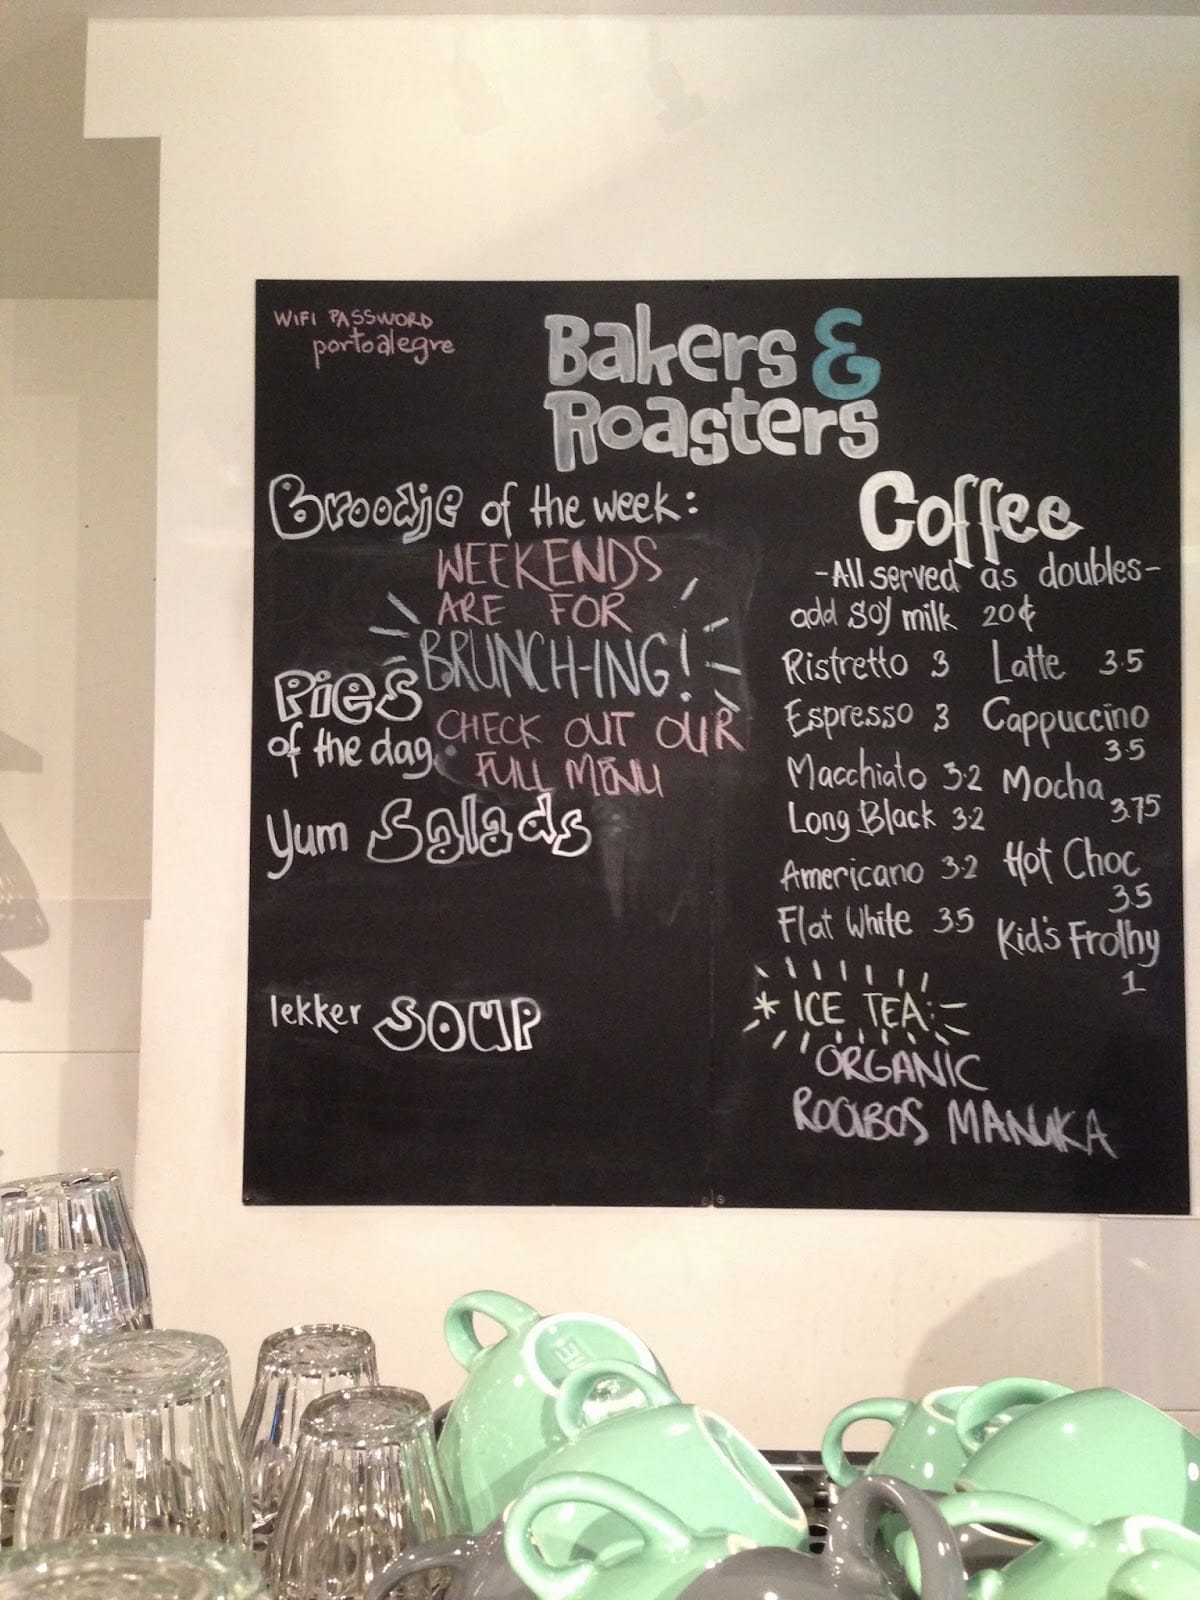 WIFI PASSWORD
portoalegre
Bakers &
Roasters
Broodje of the week:
WEEKENDS
ARE FOR
BRUNCH-ING!
CHECK OUT OUR
FULL MENU
Pies
of the day
Yum Salads
lekker SOUP
Coffee
-All served as doubles-
add soy milk 20¢
Ristretto 3 Latte 3.5
Espresso 3 Cappuccino
3.5
Macchiato 3.2 Mocha
3.75
Long Black 3.2
Americano 3.2 Hot Choc
3.5
Flat White 3.5 Kid's Frothy
1
* ICE TEA:
ORGANIC
ROOIBOS MANUKA